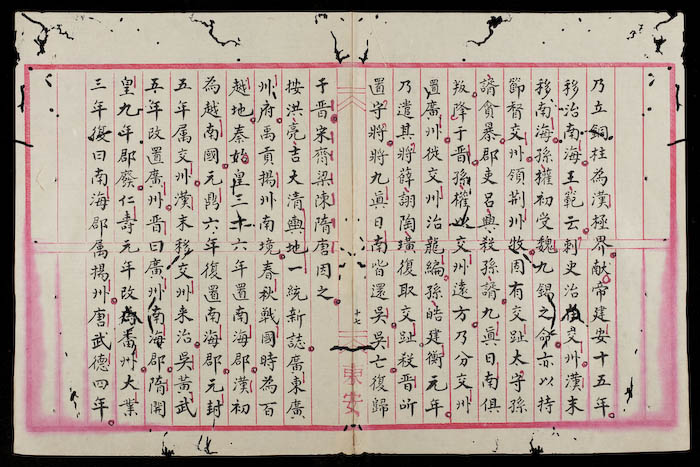 乃立銅柱為漢極界献帝建安十五年
移治南海王範云刺史治交州漢末
移南海孫權初受魏九錫之命亦以持
節督交州領荊州牧固有交趾太守孫
諝貪暴郡吏呂興殺孫諝九真日南俱
叛降于晋孫權以交州遠方乃分交州
置廣州從交州治龍編孫皓建衡元年
乃遣其將薛詡陶璜復取交趾殺晋所
置守將將九真日南皆還吳吳亡復歸
十七
東安
于晋宋齊梁陳隋唐因之
按洪亮吉大清輿地一統新誌廣東廣
州府禹貢揚州南境春秋戦國時為百
越地秦始皇三十六年置南海郡漢初
為越南國元鼎六年復置南海郡元封
五年属交州漢末移交州来治吳黃武
五年改置廣州晋曰廣州南海郡隋開
皇九年郡廢仁壽元年改為番州大業
三年復曰南海郡属揚州唐武德四年